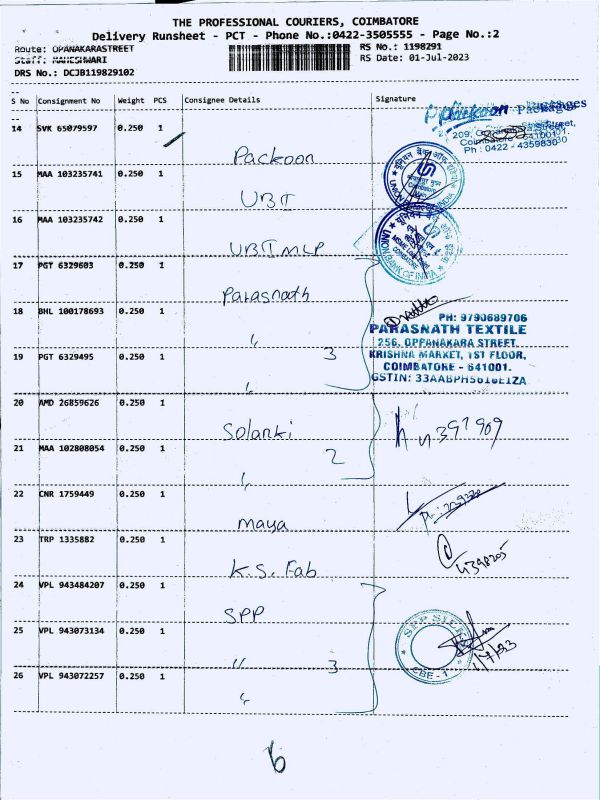 THE PROFESSIONAL COURIERS, COIMBATORE
Delivery Runsheet - PCT - Phone No.:0422-3505555 - Page No.:2
Route: OPANAKARASTREET RS No.: 1198291
Staff: MAHESHWARI RS Date: 01-Jul-2023
DRS No.: DCJB119829102
S No Consignment No Weight PCS Consignee Details Signature
14 SVK 65079597 0.250 1 Packoon
Packoon Packages
209, Street,
Coimbatore 641001.
Ph : 0422 - 4359830
15 MAA 103235741 0.250 1 UBI
UNION BANK OF INDIA
16 MAA 103235742 0.250 1 UBI MLP
UNION BANK OF INDIA
17 PGT 6329603 0.250 1 Parasnath
18 BHL 100178693 0.250 1 〃
19 PGT 6329495 0.250 1 〃
3
PH: 9790689706
PARASNATH TEXTILE
256, OPPANAKARA STREET,
KRISHNA MARKET, 1ST FLOOR,
COIMBATORE - 641001.
20 AMD 26859626 0.250 1 Solanki
21 MAA 102808054 0.250 1 〃
2
22 CNR 1759449 0.250 1 Maya
23 TRP 1335882 0.250 1 K.S. Fab
24 VPL 943484207 0.250 1 SPP
25 VPL 943073134 0.250 1 〃
26 VPL 943072257 0.250 1 〃
3
SPP SILK
CBE - 1
1/7/23
6